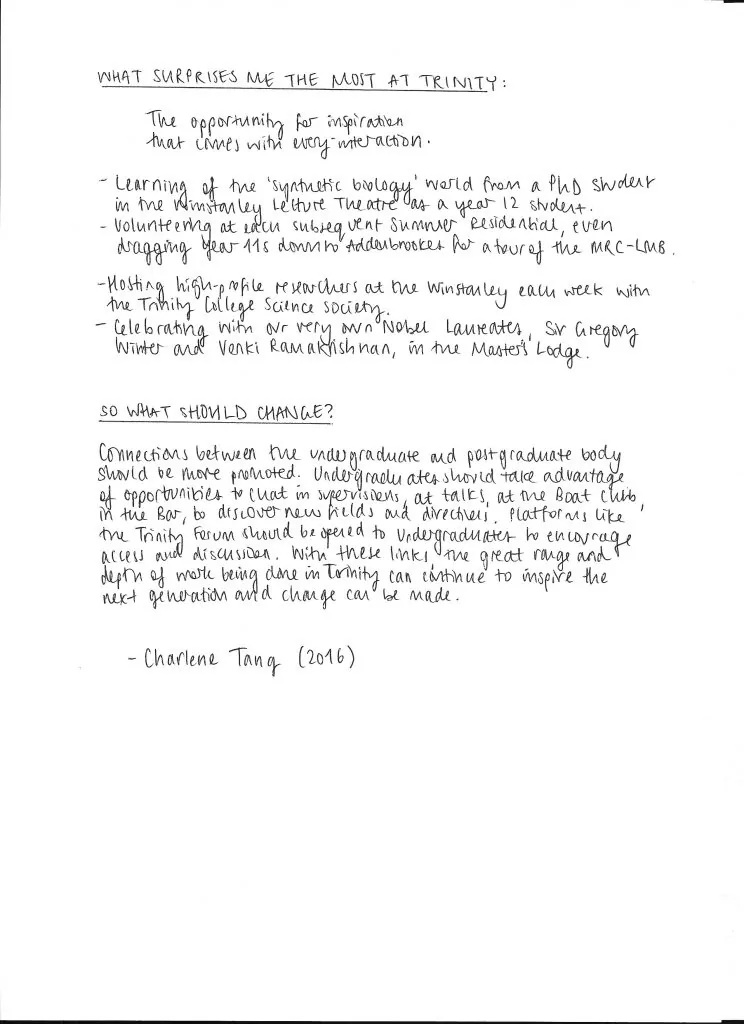 WHAT SURPRISES ME THE MOST AT TRINITY:
The opportunity for inspiration
that comes with every interaction.
- Learning of the 'synthetic biology' world from a PhD student
in the Winstanley Lecture Theatre as a year 12 student.
- Volunteering at each subsequent Summer Residential, even
dragging Year 11s down to Addenbrookes for a tour of the MRC-LMB.
- Hosting high-profile researchers at the Winstanley each week with
the Trinity College Science Society.
- Celebrating with our very own Nobel Laureates, Sir Gregory
Winter and Venki Ramakrishnan, in the Master's Lodge.
SO WHAT SHOULD CHANGE?
Connections between the undergraduate and postgraduate body
should be more promoted. Undergraduates should take advantage
of opportunities to chat in supervisions, at talks, at the Boat Club,
in the Bar, to discover new fields and directions. Platforms like
the Trinity Forum should be opened to Undergraduates to encourage
access and discussion. With these links, the great range and
depth of work being done in Trinity can continue to inspire the
next generation and change can be made.
- Charlene Tang (2016)